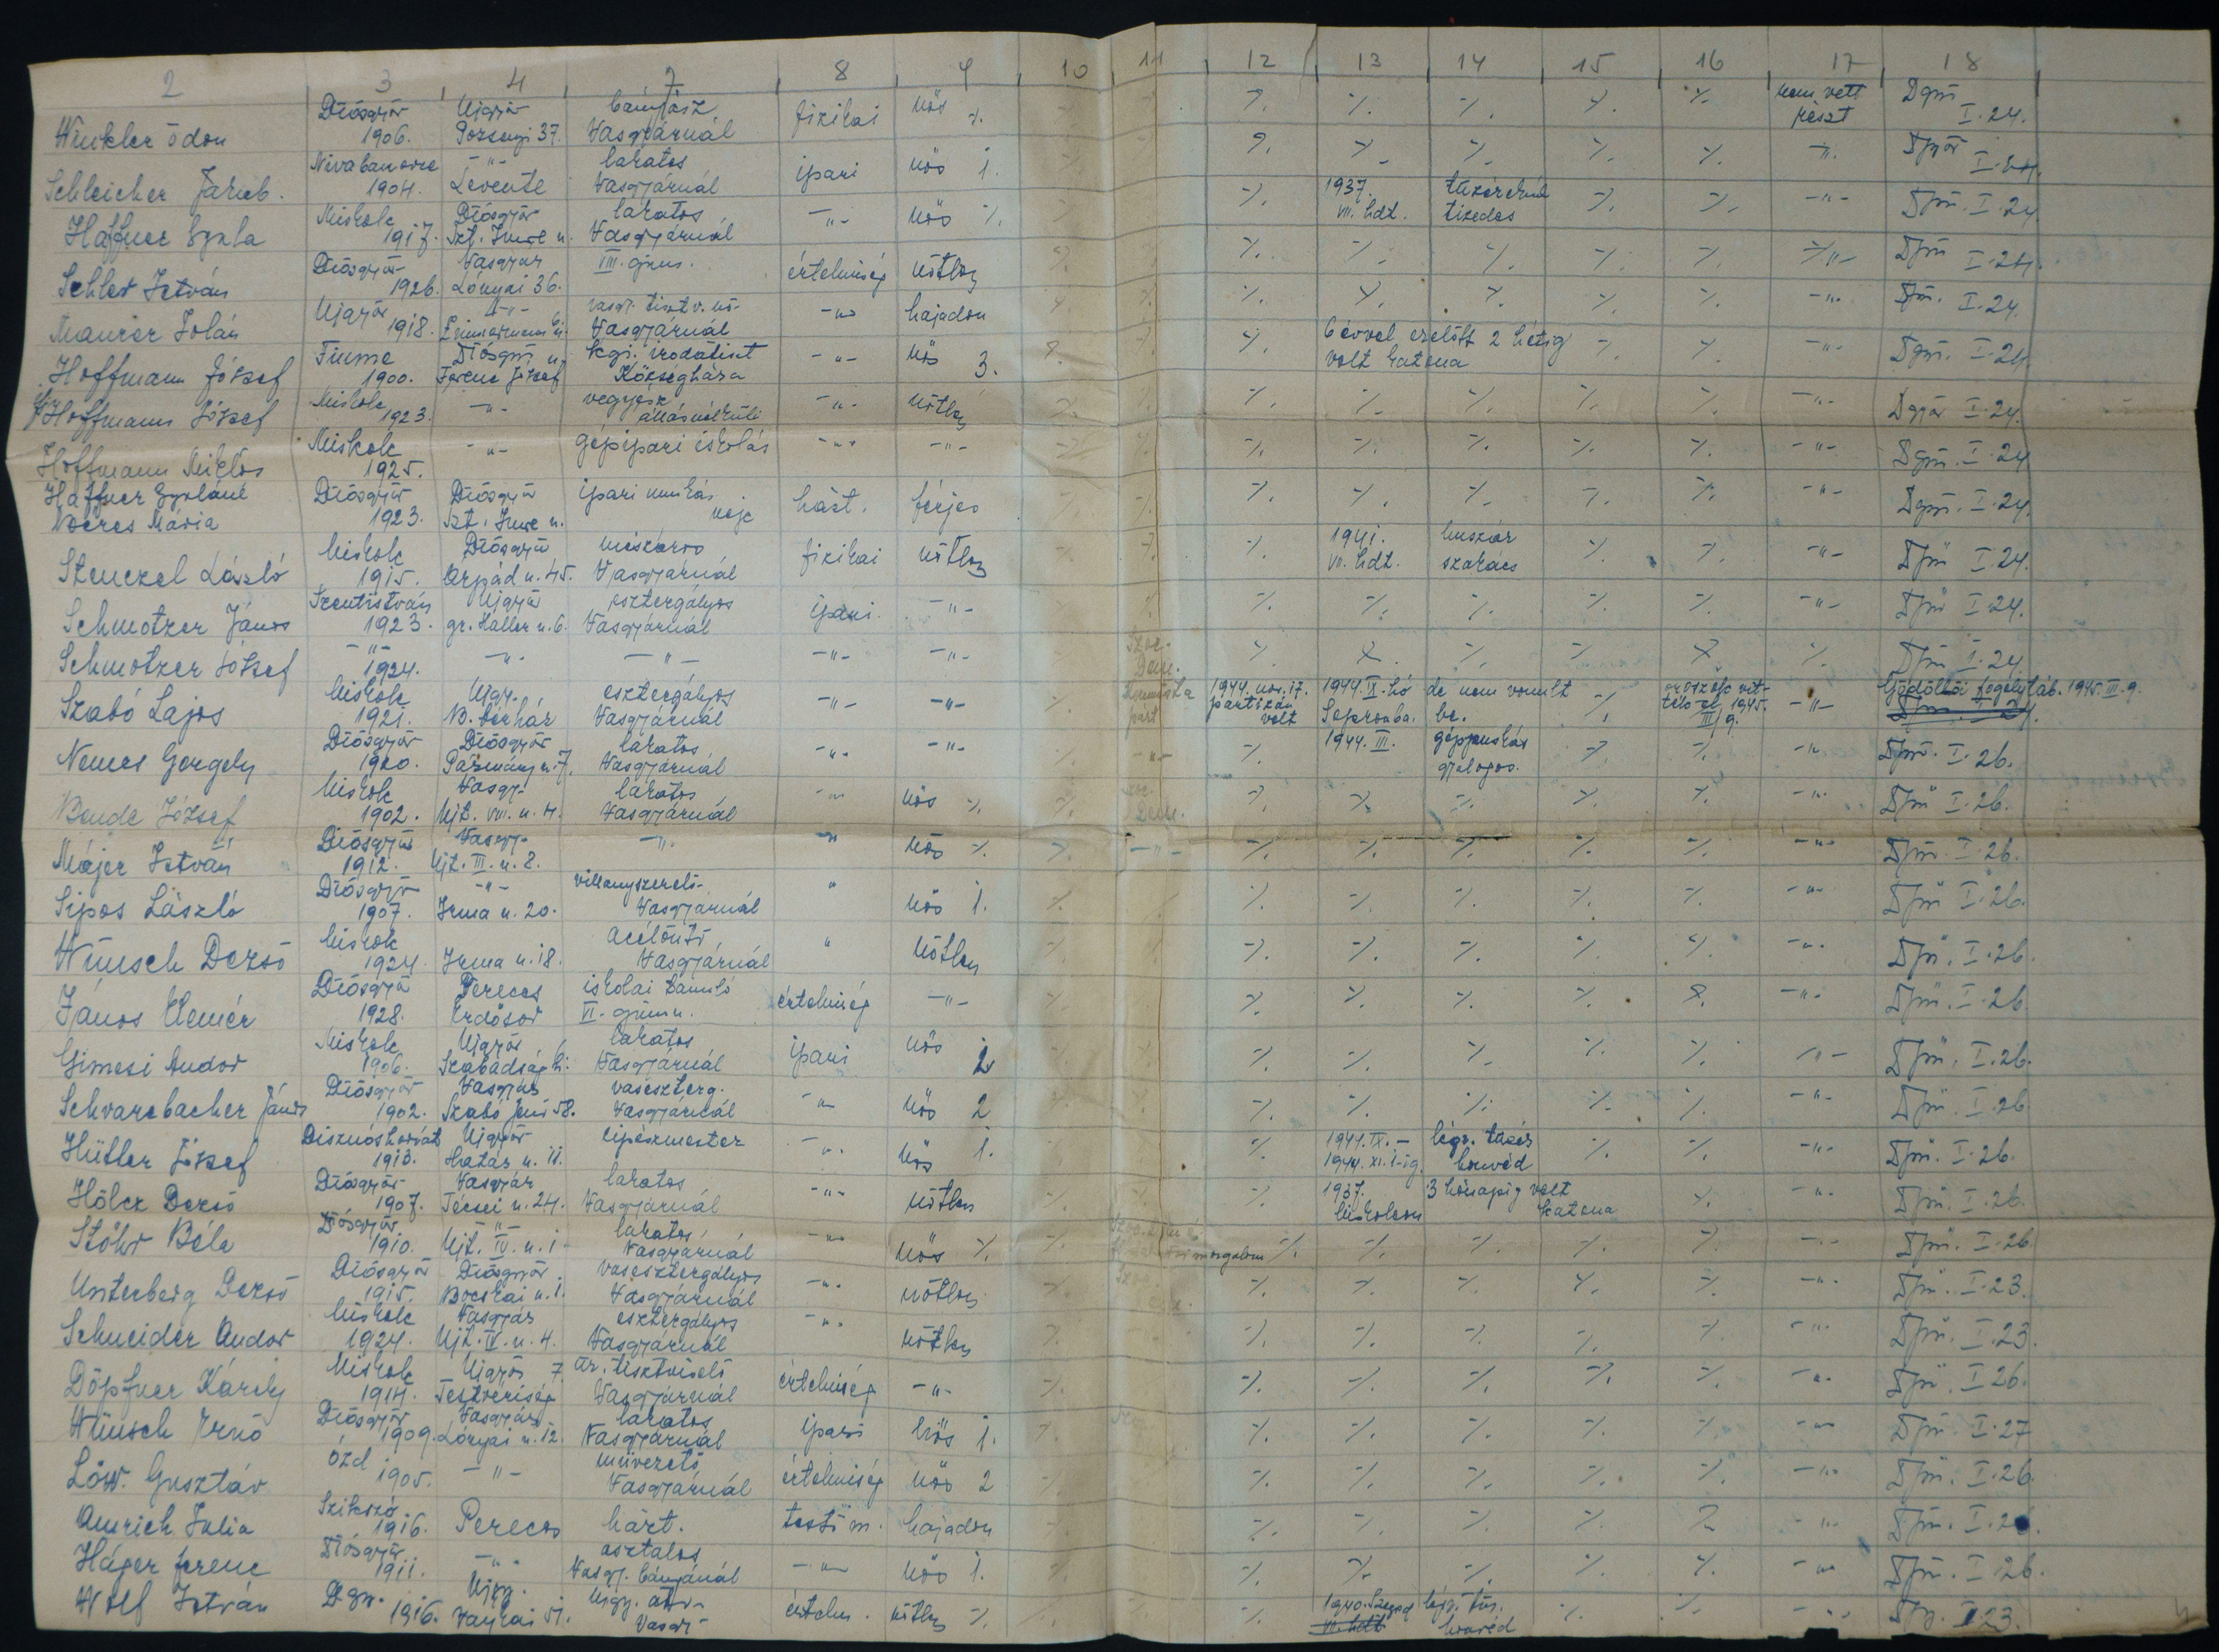 2 3 4 7 8 9 10 11 12 13 14 15 16 17 18
Winkler Ödön Diósgyőr 1906. Ujgyőr Pozsonyi 37. bányász Vasgyárnál fizikai nős %. %. %. %. %. %. nem vett részt Dgyőr I.24.
Schleicher Jakab. 1904. -"- Levente lakatos Vasgyárnál ipari nős 1. %. %. %. %. %. -"- Dgyőr I.24.
Haffner Gyula Miskolc 1917. Diósgyőr Szt. Imre u. lakatos Vasgyárnál -"- nős %. %. 1937. VII. hdt. tizedes %. %. -"- Dgyőr I.24
István Diósgyőr 1926. Vasgyár Lónyai 36. VIII. gimn. értelmiség nőtlen %. %. %. %. %. -"- Dgyőr I.24.
Maurer Jolán Ujgyőr 1918. -"- vasgy. tisztv. nő Vasgyárnál -"- hajadon %. %. %. %. %. -"- Dgyőr. I.24.
Hoffmann József Fiume 1900. Diósgyőr Ferenc József u. kgi. irodatiszt Községháza -"- nős 3. %. 6 évvel ezelőtt 2 hétig volt katona %. %. -"- Dgyőr. I.24
if. Hoffmann József Miskolc 1923. -"- vegyész állásnélküli -"- nőtlen %. %. %. %. %. %. -"- Dgyőr I.24.
Hoffmann Miklós Miskolc 1925. -"- gépipari iskolás -"- -"- %. %. %. %. %. %. -"- Dgyőr. I.24
Haffner Gyuláné Mária Diósgyőr 1923. Diósgyőr Szt. Imre u. ipari munkás neje házt. férjes %. %. %. %. %. %. %. -"- Dgyőr. I.24.
Stenczel László Miskolc 1915. Diósgyőr Árpád u. 45. mészáros Vasgyárnál fizikai nőtlen %. %. %. 1941. VII. hdt. huszár szakács %. %. -"- Dgyőr I.24.
Schmotzer János Szentistván 1923. Ujgyőr gr. Haller u. 6. esztergályos Vasgyárnál ipari -"- %. %. %. %. %. %. -"- Dgyőr I.24.
Schmotzer József -"- 1924. -"- -"- -"- -"- Szoc. Dem. %. %. %. %. %. %. Dgyőr I.24
Szabó Lajos Miskolc 1921. Ujgy. B. bérház esztergályos Vasgyárnál -"- -"- %. Kommunista párt 1944. nov. 17. partizán volt 1944. IX. hó Sopronba. de nem vonult be. %. oroszok vit- ték el 1945. III/9. -"- Gödöllői fogolytáb. 1945. III. 9.
Nemes Gergely Diósgyőr 1920. Diósgyőr Pázmány u. 7. lakatos Vasgyárnál -"- -"- %. -"- %. 1944. III. géppuskás gyalogos. %. %. -"- Dgyőr. I.26.
Bende József Miskolc 1902. Vasgy. Ujt. VIII. u. 4. lakatos Vasgyárnál -"- nős %. %. Szoc. Dem. %. %. %. %. %. -"- Dgyőr I.26.
Májer István Diósgyőr 1912. Vasgy. Ujt. III. u. 8. -"- " nős %. %. -"- %. %. %. %. %. -"- Dgyőr. I.26.
Sipos László Diósgyőr 1907. -"- Irma u. 20. villanyszerelő Vasgyárnál " nős 1. %. %. %. %. %. %. %. -"- Dgyőr I.26.
Wünsch Dezső Miskolc 1924. Irma u. 18. acélöntő Vasgyárnál " nőtlen %. %. %. %. %. %. %. -"- Dgyőr. I.26.
János Elemér Diósgyőr 1928. Pereces Erdősor iskolai tanuló VI. gimn. értelmiség -"- %. %. %. %. %. %. %. -"- Dgyőr. I.26
Gimesi Andor Miskolc 1906. Ujgyőr Szabadság u. lakatos Vasgyárnál ipari nős 2 %. %. %. %. %. %. %. -"- Dgyőr. I.26.
Schvarcbacher János Diósgyőr 1902. Vasgyár Szabó Jenő 58. vaseszterg. Vasgyárnál -"- nős 2 %. %. %. %. %. %. %. -"- Dgyőr. I.26
Hütler József Disznóshorvát 1913. Ujgyőr Határ u. 11. cipészmester -"- nős 1. %. 1944. IX. - 1944. XI. 1-ig. légv. tüzér honvéd %. %. -"- Dgyőr. I.26.
Hölcz Dezső Diósgyőr 1907. Vasgyár Técsei u. 24. lakatos Vasgyárnál -"- nőtlen %. %. %. 1937. Miskolcon 3 hónapig volt katona %. -"- Dgyőr. I.26.
Stöhr Béla Diósgyőr 1910. -"- Ujt. IV. u. 1 lakatos Vasgyárnál -"- nős %. %. %. %. %. %. %. -"- Dgyőr. I.26
Unterberg Dezső Diósgyőr 1915. Diósgyőr Bocskai u. 1. vasesztergályos Vasgyárnál -"- nőtlen %. %. %. %. %. %. -"- Dgyőr. I.23.
Schneider Andor Miskolc 1924. Vasgyár Ujt. IV. u. 4. esztergályos Vasgyárnál -"- nőtlen %. %. %. %. %. %. -"- Dgyőr. I.23.
Döpfner Károly Miskolc 1914. Ujgyőr Testvériség 7 tisztviselő Vasgyárnál értelmiség -"- %. %. %. %. %. %. -"- Dgyőr. I.26.
Wünsch Ernő Diósgyőr 1909. Vasgyár Lónyai u. 12. lakatos Vasgyárnál ipari nős 1. %. %. %. %. %. %. -"- Dgyőr. I.27
Löw. Gusztáv Ózd 1905. -"- művezető Vasgyárnál értelmiség nős 2 %. %. %. %. %. %. -"- Dgyőr. I.26.
Amrich Julia Szikszó 1916. Pereces házt. testi m. hajadon %. %. %. %. %. %. -"- Dgyőr. I.26.
Háger Ferenc Diósgyőr 1911. -"- asztalos Vasgy. bányánál -"- nős 1. %. %. %. %. %. %. -"- Dgyőr. I.26.
Wolf István Dgy. 1916. Ujgy. 51. értelm. nőtlen %. %. 1940. Szeged honvéd %. %. -"- Dgy. I.23.